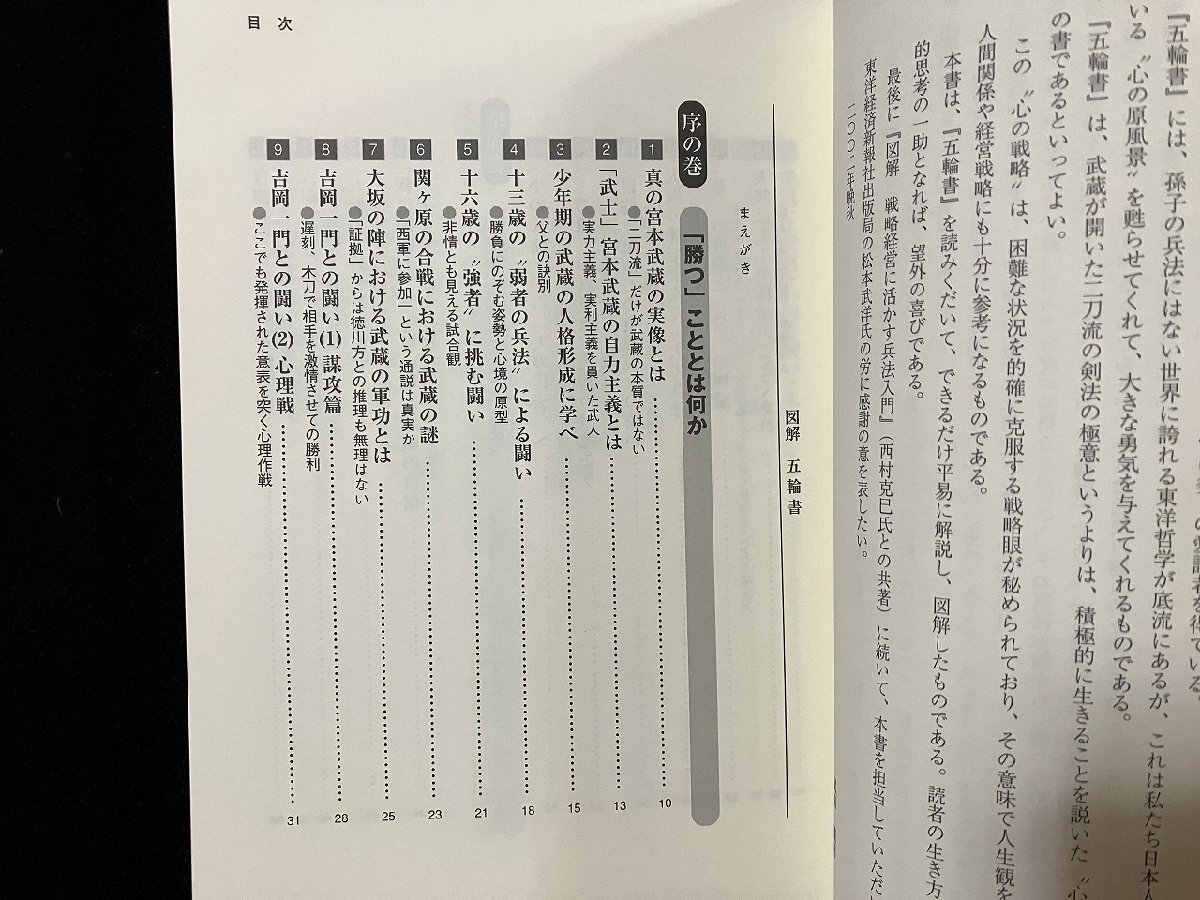 『五輪書』には、孫子の兵法にはない世界に誇れる東洋哲学が底流にあるが、これは私たち日本人
いる〝心の原風景〟を甦らせてくれて、大きな勇気を与えてくれるものである。
『五輪書』は、武蔵が開いた二刀流の剣法の極意というよりは、積極的に生きることを説いた〝心
の書であるといってよい。
この〝心の戦略〟は、困難な状況を的確に克服する戦略眼が秘められており、その意味で人生観を
人間関係や経営戦略にも十分に参考になるものである。
本書は、『五輪書』を読みくだいて、できるだけ平易に解説し、図解したものである。読者の生き方
的思考の一助となれば、望外の喜びである。
最後に『図解 戦略経営に活かす兵法入門』(西村克巳氏との共著)に続いて、本書を担当していただ
東洋経済新報社出版局の松本武洋氏の労に感謝の意を表したい。
二〇〇二年晩秋
目次
図解 五輪書
まえがき
序の巻 「勝つ」こととは何か
1 真の宮本武蔵の実像とは 10
●「二刀流」だけが武蔵の本質ではない
2 「武士」宮本武蔵の自力主義とは 13
●実力主義、実利主義を貫いた武人
3 少年期の武蔵の人格形成に学べ 15
●父との訣別
4 十三歳の〝弱者の兵法〟による闘い 18
●勝負にのぞむ姿勢と心境の原型
5 十六歳の〝強者〟に挑む闘い 21
●非情とも見える試合観
6 関ヶ原の合戦における武蔵の謎 23
●「西軍に参加」という通説は真実か
7 大坂の陣における武蔵の軍功とは 25
●「証拠」からは徳川方との推理も無理はない
8 吉岡一門との闘い(1) 謀攻篇 28
●遅刻、木刀で相手を激情させての勝利
9 吉岡一門との闘い(2) 心理戦 31
●ここでも発揮された意表を突く心理作戦